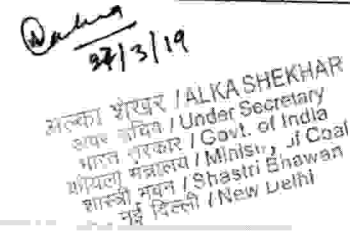 27/3/19
अल्का शेखर / ALKA SHEKHAR
अवर सचिव / Under Secretary
भारत सरकार / Govt. of India
कोयला मंत्रालय / Ministry of Coal
शास्त्री भवन / Shastri Bhawan
नई दिल्ली / New Delhi